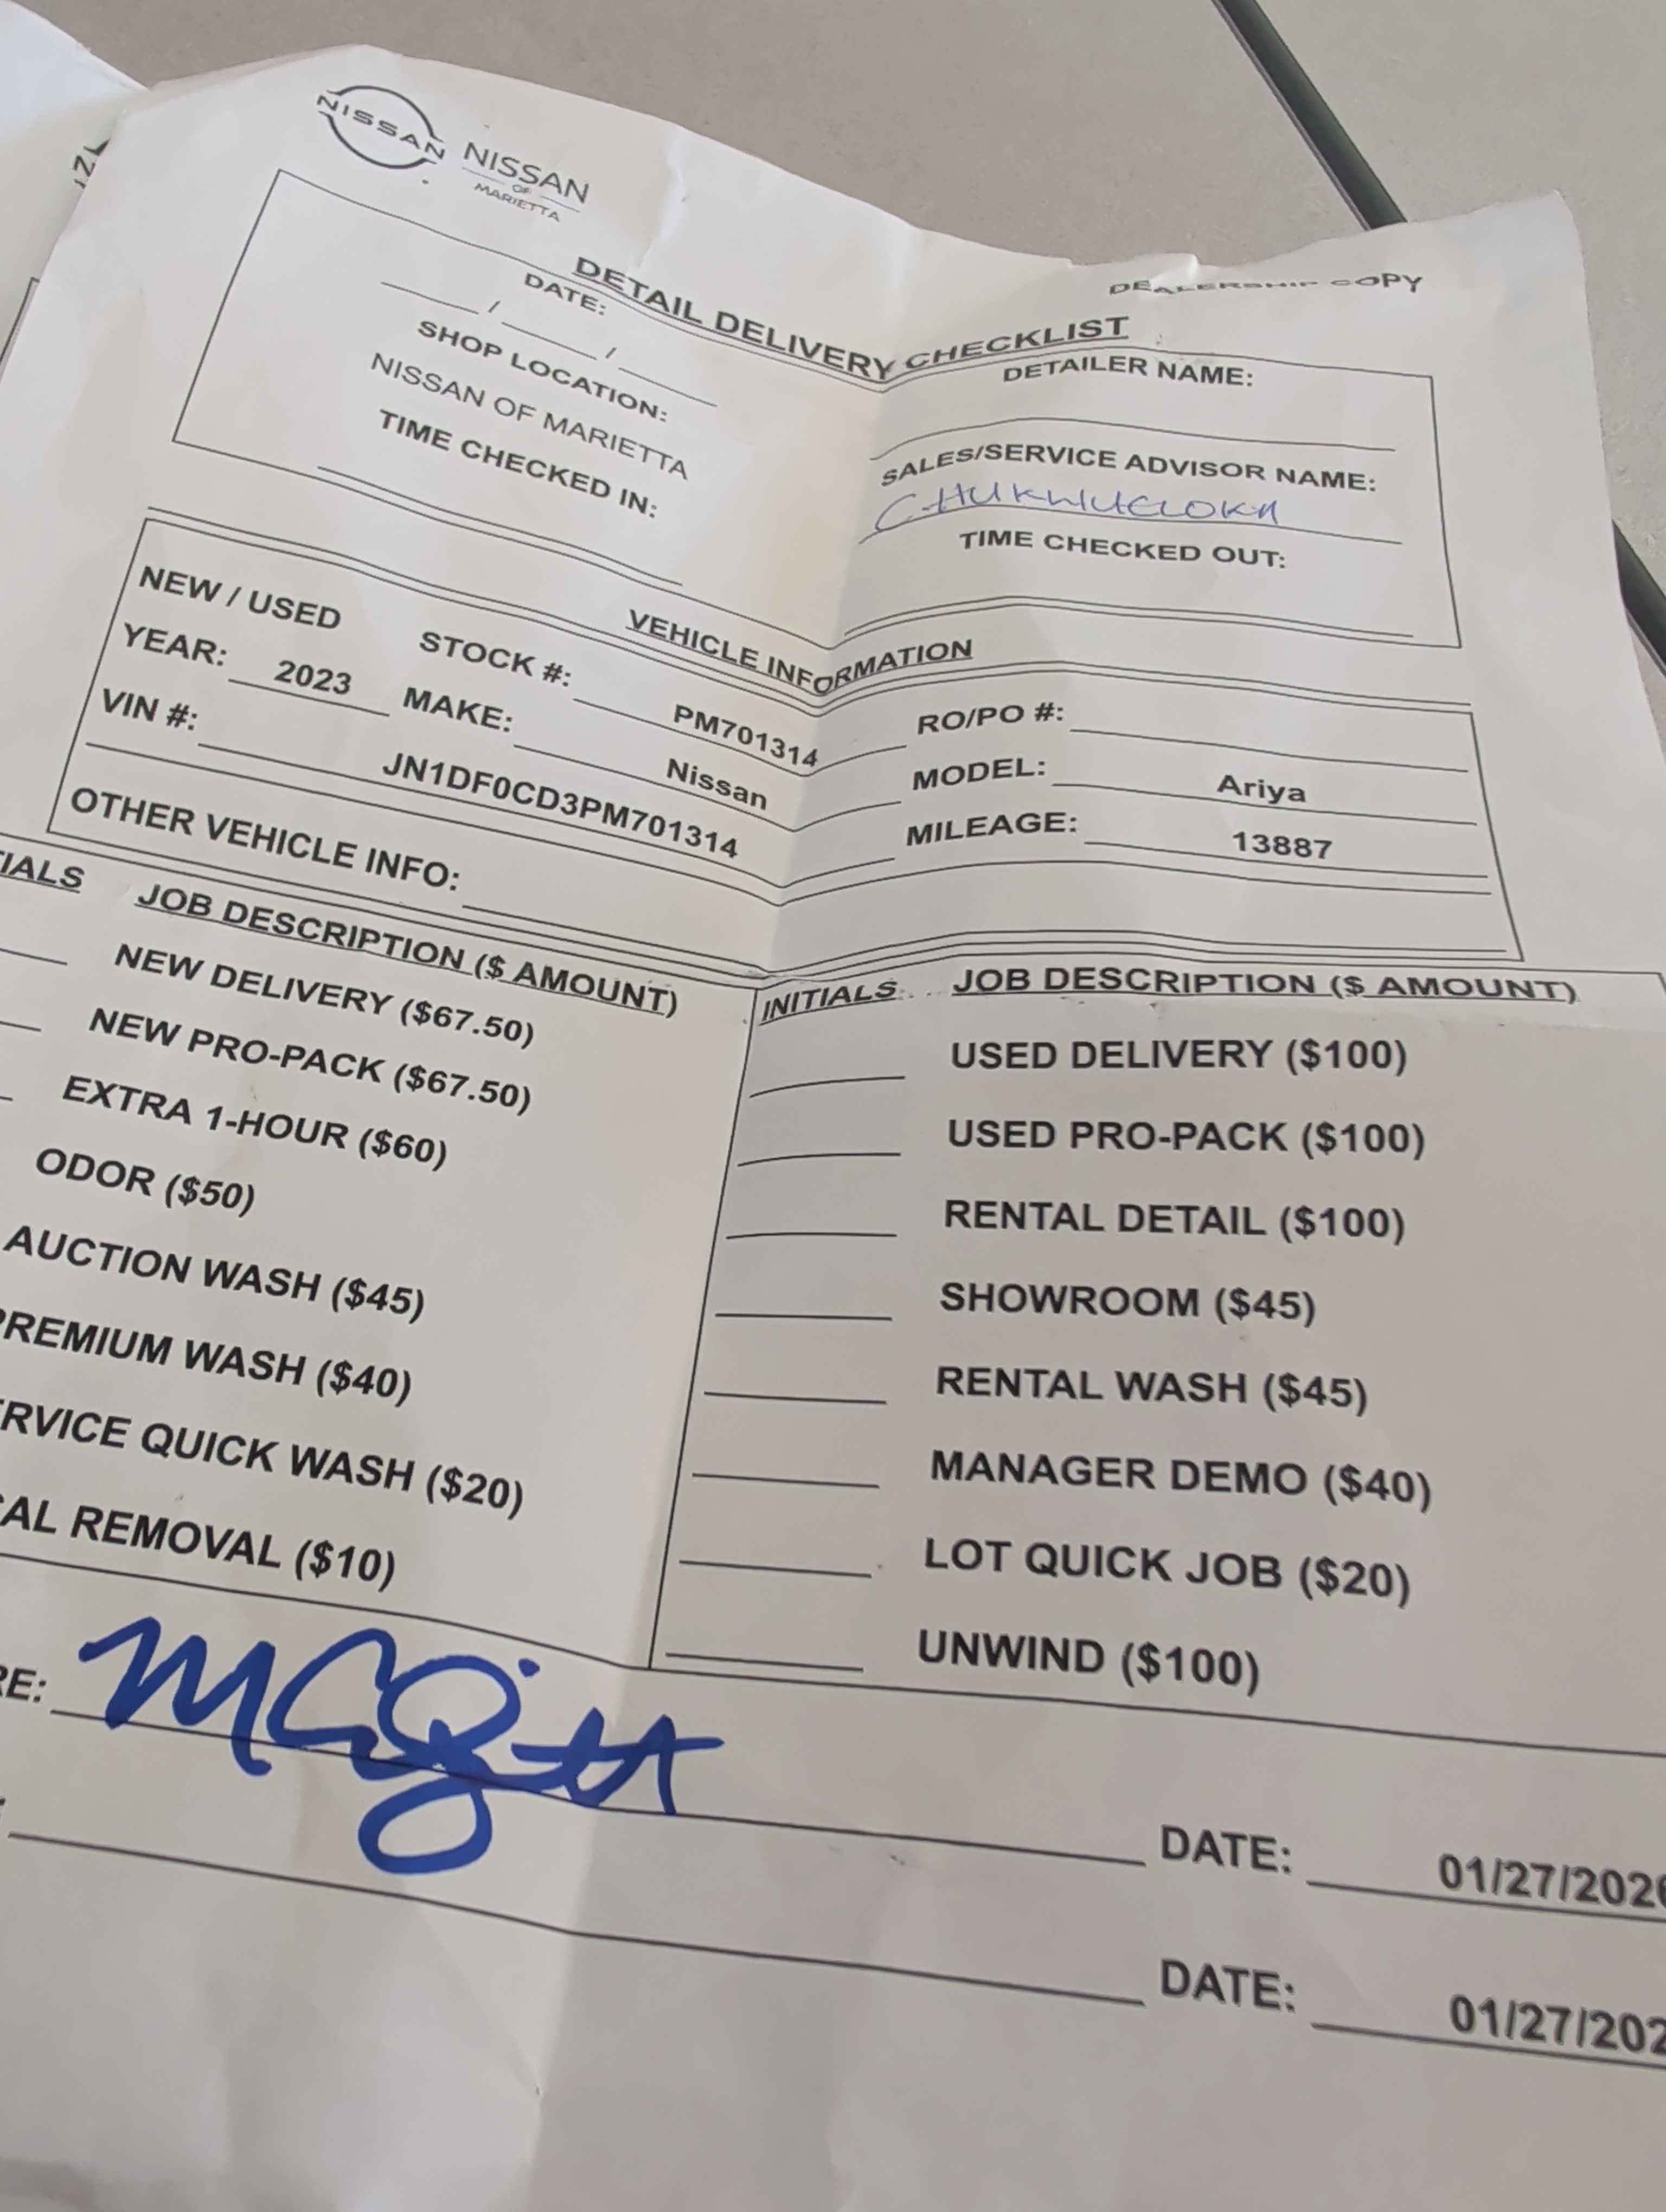 NISSAN
NISSAN
OF
MARIETTA
DEALERSHIP COPY
DETAIL DELIVERY CHECKLIST
DATE:
/ /
DETAILER NAME:
SHOP LOCATION:
NISSAN OF MARIETTA
SALES/SERVICE ADVISOR NAME:
CHUKWUELOKA
TIME CHECKED IN:
TIME CHECKED OUT:
VEHICLE INFORMATION
NEW / USED STOCK #: PM701314 RO/PO #:
YEAR: 2023 MAKE: Nissan MODEL: Ariya
VIN #: JN1DF0CD3PM701314 MILEAGE: 13887
OTHER VEHICLE INFO:
TIALS JOB DESCRIPTION ($ AMOUNT) INITIALS JOB DESCRIPTION ($ AMOUNT)
NEW DELIVERY ($67.50) USED DELIVERY ($100)
NEW PRO-PACK ($67.50) USED PRO-PACK ($100)
EXTRA 1-HOUR ($60) RENTAL DETAIL ($100)
ODOR ($50) SHOWROOM ($45)
AUCTION WASH ($45) RENTAL WASH ($45)
PREMIUM WASH ($40) MANAGER DEMO ($40)
ERVICE QUICK WASH ($20) LOT QUICK JOB ($20)
CAL REMOVAL ($10) UNWIND ($100)
RE: DATE: 01/27/2026
DATE: 01/27/202